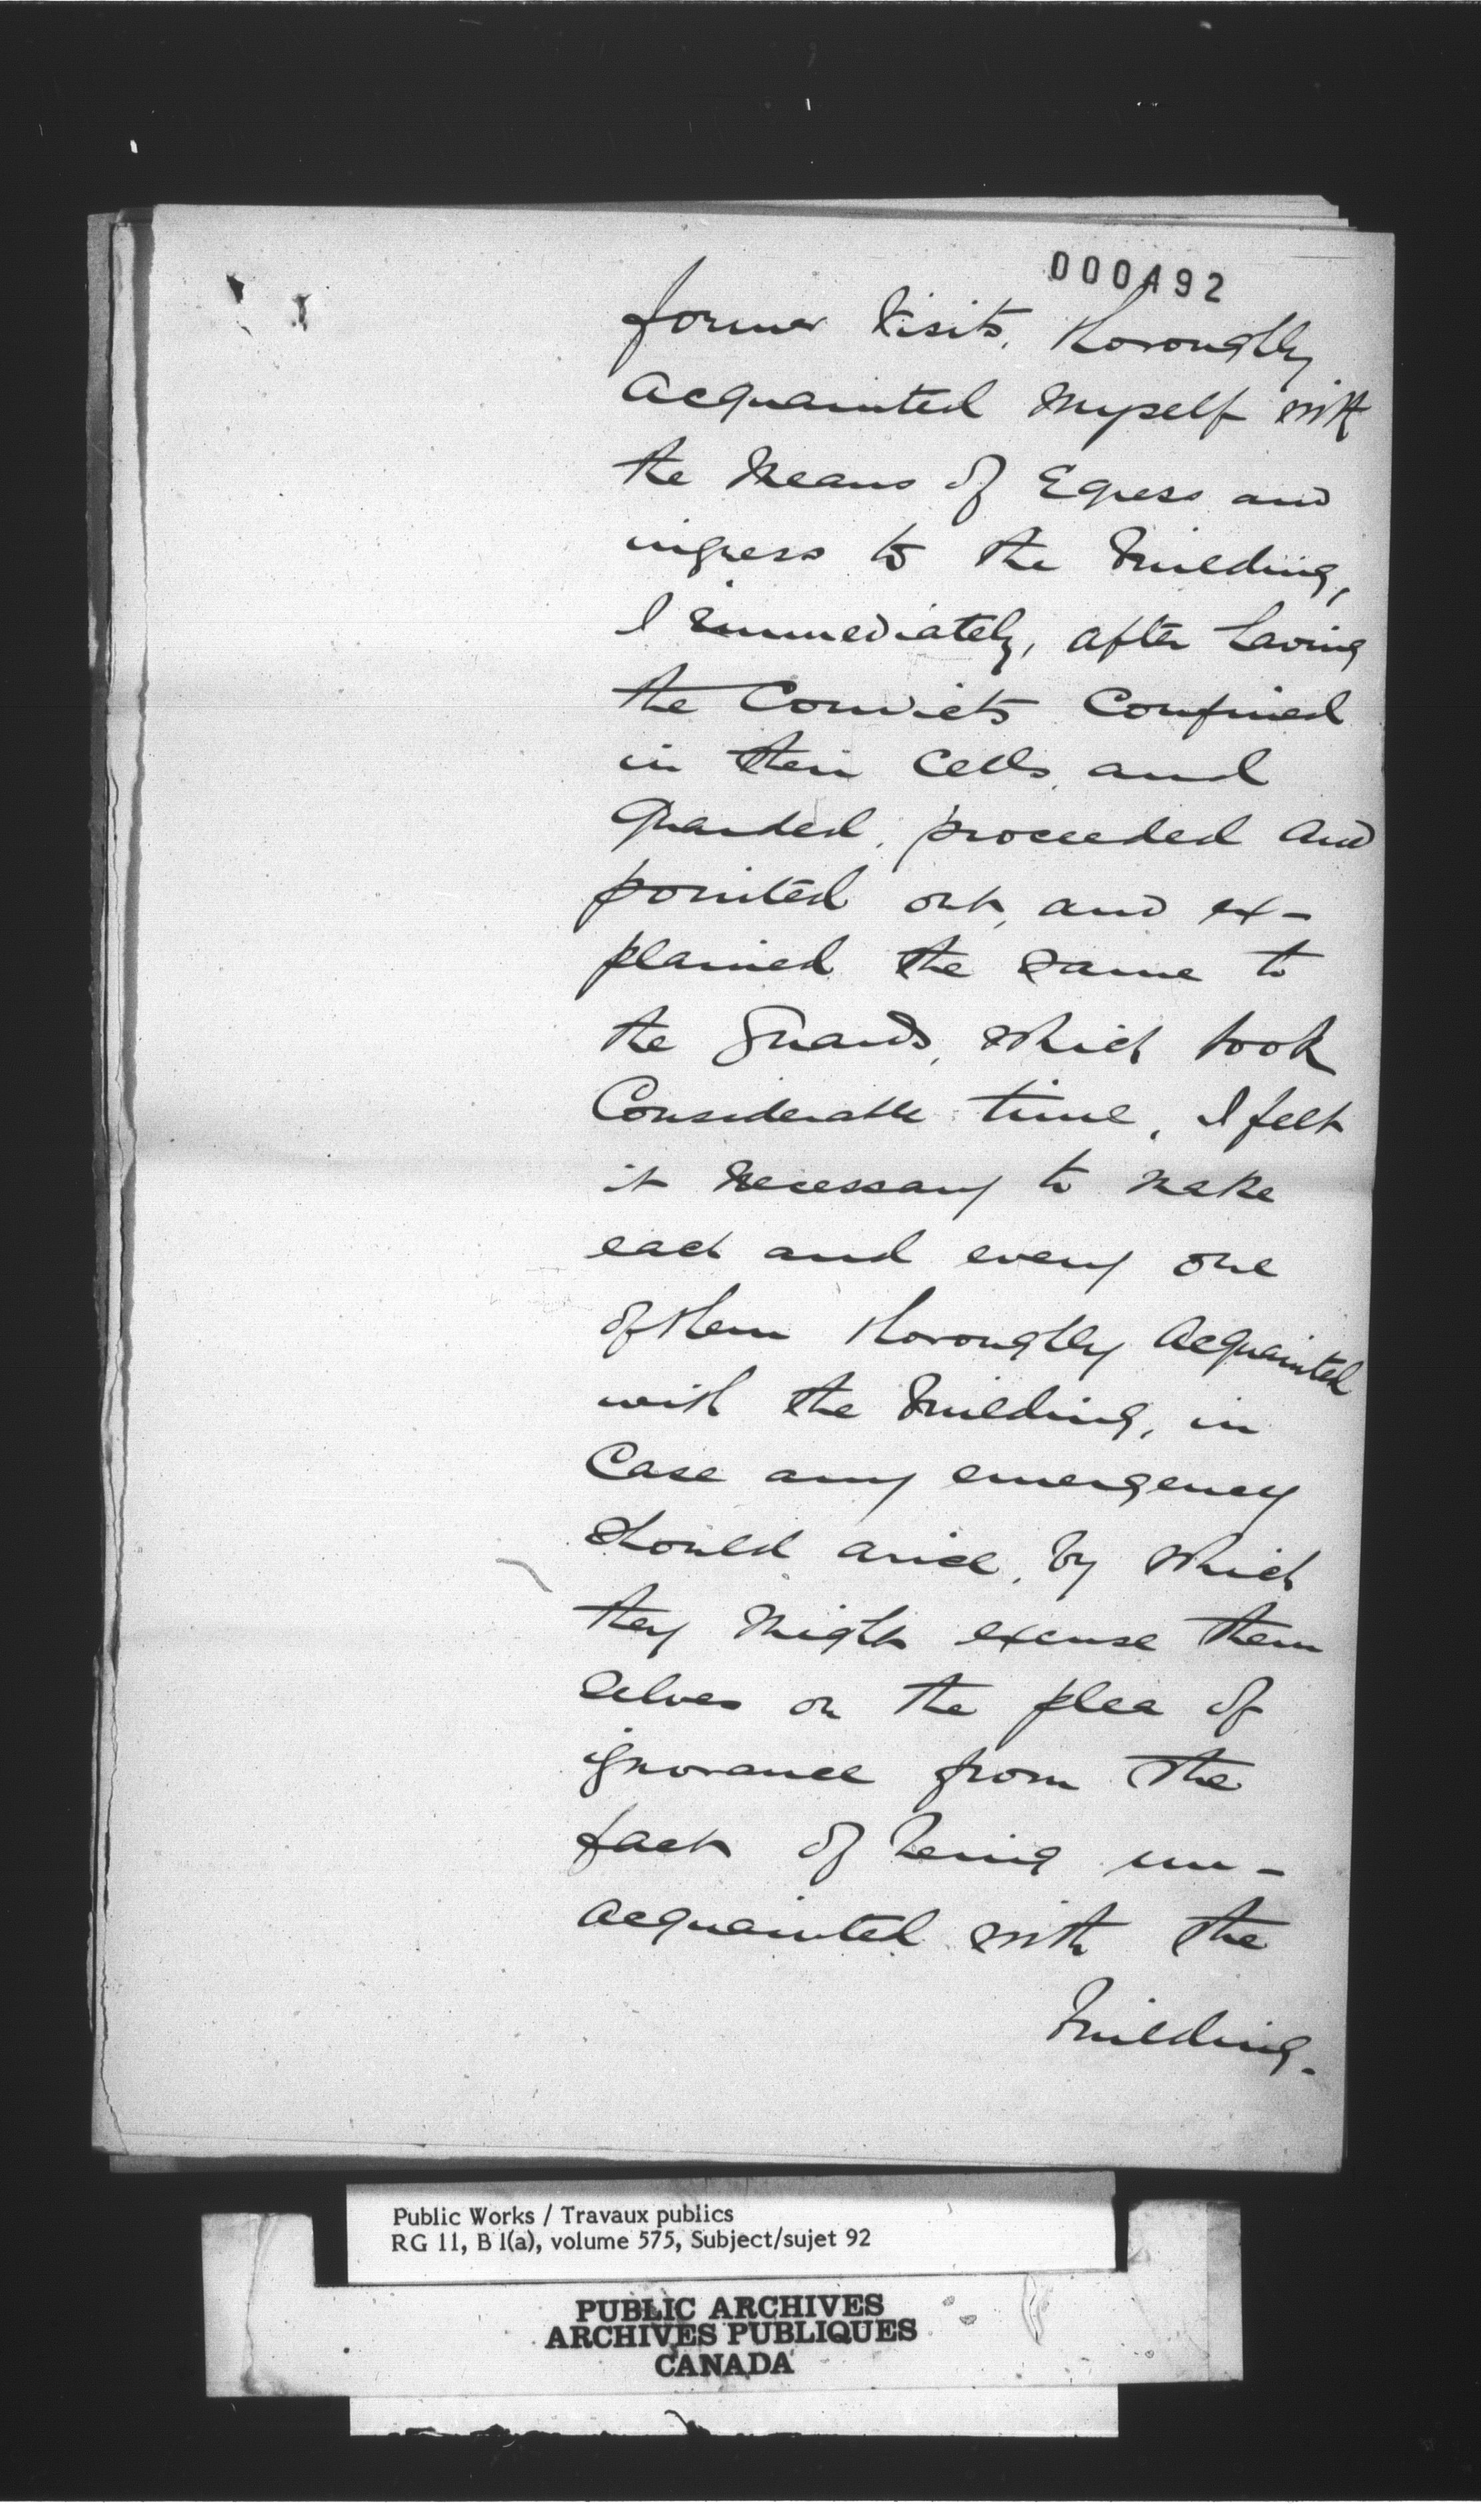 000492
former visits, thoroughly
acquainted myself with
the means of Egress and
ingress to the building,
I immediately, after having
the Convicts Confined
in their Cells, and
Guarded, proceeded and
pointed out, and ex-
plained the same to
the Guards, which took
Considerable time, I felt
it necessary to make
each and every one
of them thoroughly acquainted
with the building, in
Case any emergency
should arise, by which
they might excuse them
selves on the plea of
ignorance from the
fact of being un-
acquainted with the
building.
Public Works / Travaux publics
RG 11, B 1(a), volume 575, Subject/sujet 92
PUBLIC ARCHIVES
ARCHIVES PUBLIQUES
CANADA